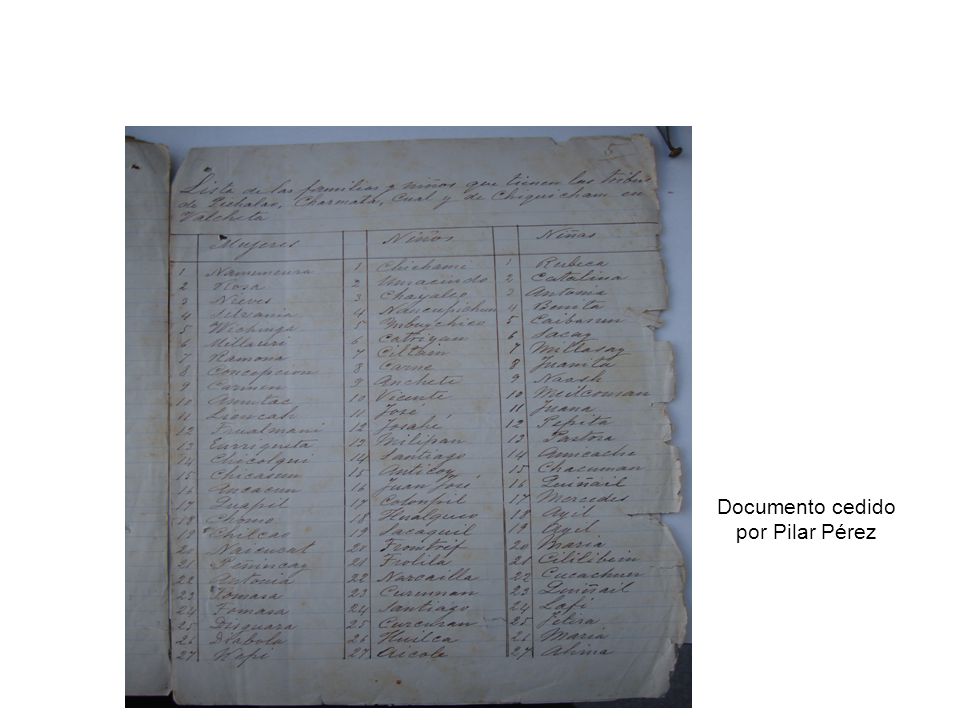 5
Lista de las familias y niños que tienen las tribus
de Pichalao, Charmata, Cual y de Chiquichan en
Valcheta
Mujeres Niños Niñas
1 Namuncura 1 Chichami 1 Rubeca
2 Rosa 2 2 Catalina
3 Nieves 3 Chayaleo 3 Antonia
4 Silvania 4 Naucupichun 4 Benita
5 Wichinga 5 5 Caibasun
6 Millauri 6 Catriyan 6 Sacay
7 Ramona 7 Ciltain 7 Millasay
8 Concepcion 8 Carne 8 Juanita
9 Carmen 9 Ancheti 9 Naash
10 Amutac 10 Vicente 10
11 11 José 11 Juana
12 12 Josahé 12 Pepita
13 13 Milipan 13 Pastora
14 Chicolqui 14 Santiago 14
15 Chicasun 15 Anticoy 15 Chacuman
16 Ancacun 16 Juan José 16 Quiñail
17 Guapil 17 Colonpil 17 Mercedes
18 Chomo 18 Hualquio 18 Ayil
19 Chilcao 19 Sacaquil 19 Ayil
20 Naicucat 20 20 Maria
21 21 Frolila 21
22 Antonia 22 Narcailla 22 Cucachuen
23 Tomasa 23 Curunnan 23 Quiñail
24 Tomasa 24 Santiago 24 Lafi
25 Disguara 25 Curcuran 25
26 Diabola 26 Huilca 26 Maria
27 Kapi 27 Aicole 27
Documento cedido
por Pilar Pérez